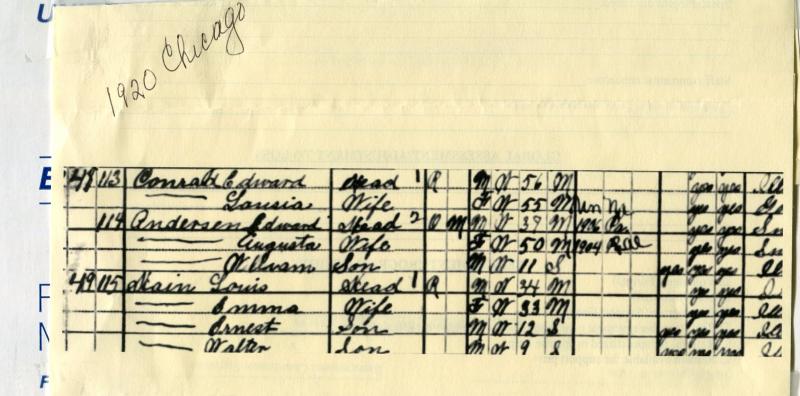 1920 Chicago
48 113 Conrad Edward Head 1 R M W 56 M yes yes Ill
Wife F W 55 M Un yes yes
114 Andersen Edward Head 2 O M M W 39 M yes yes
Augusta Wife F W 50 M 1904 yes yes
William Son M W 11 S yes yes yes Ill
49 115 Louis Head 1 R M W 34 M yes yes
Emma Wife F W 33 M yes yes Ill
Ernest Son M W 12 S yes yes yes Ill
Walter Son M W 9 S Ill